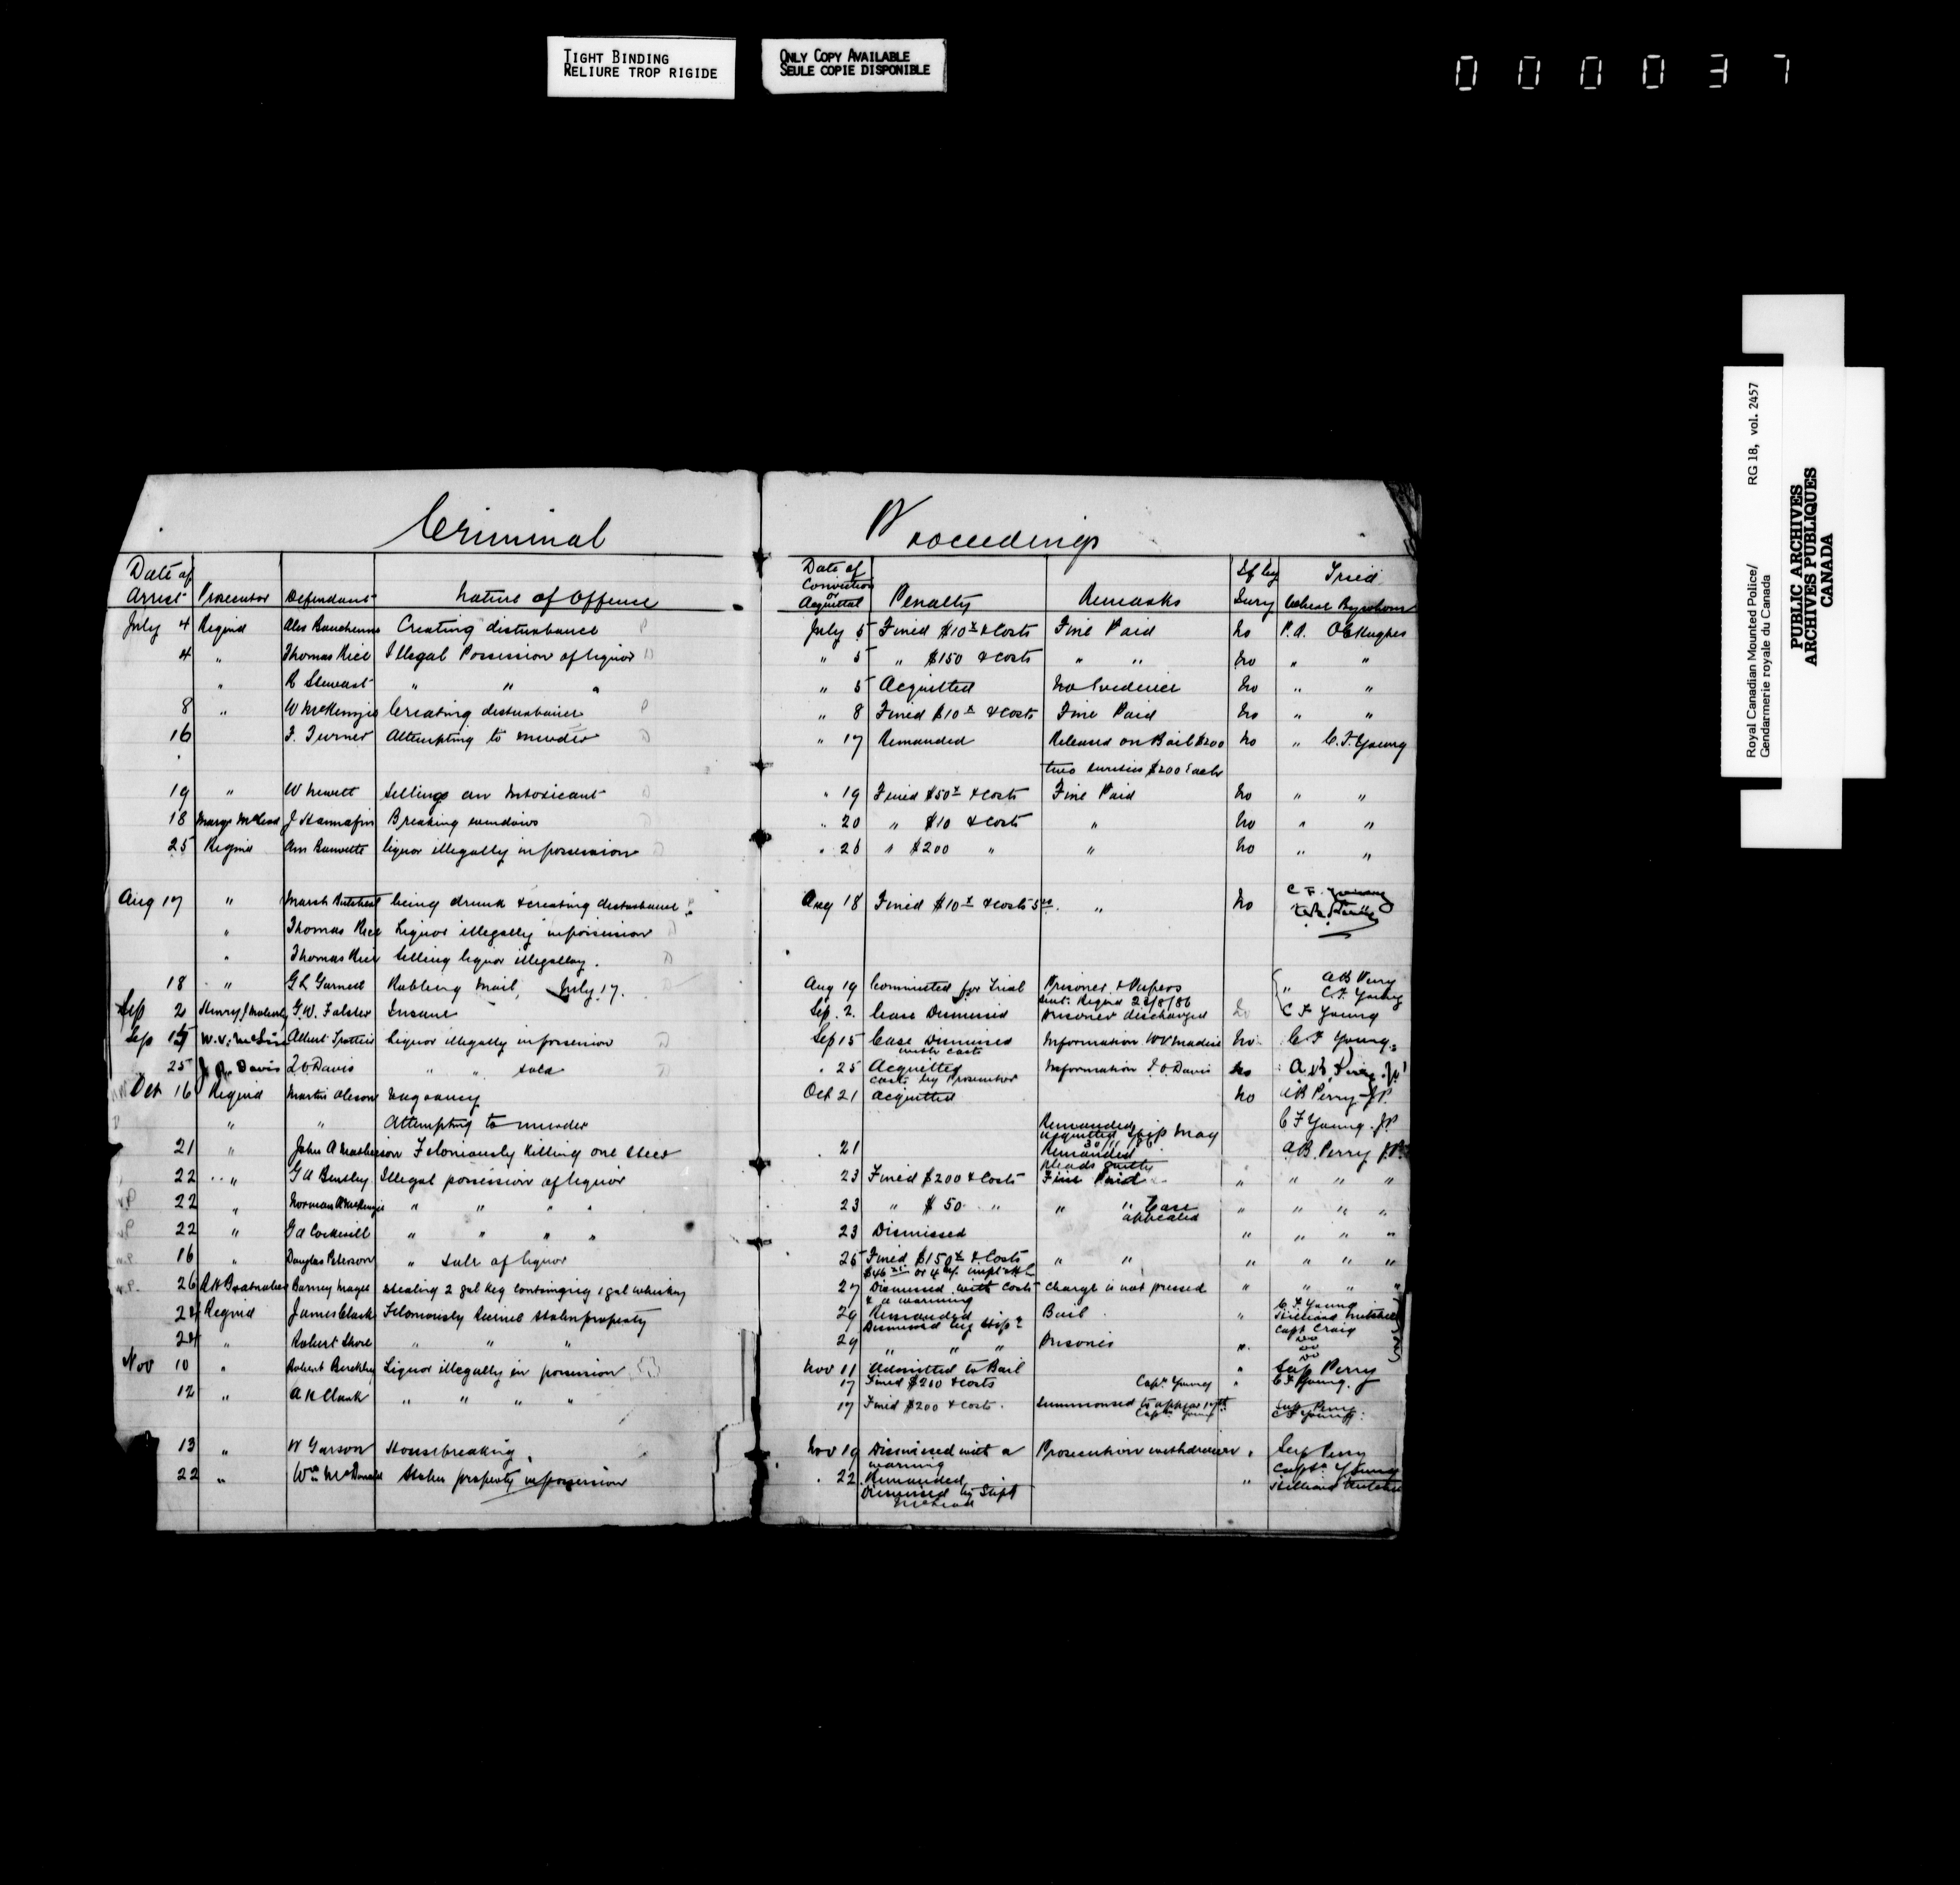 TIGHT BINDING
RELIURE TROP RIGIDE
ONLY COPY AVAILABLE
SEULE COPIE DISPONIBLE
000037
Criminal Proceedings
Date of Arrest Prosecutor Defendant Nature of Offence Date of Conviction or Acquittal Penalty Remarks If by Jury Tried Where By whom
July 4 Regina Creating disturbance July 5 Fined $10 & Costs Fine Paid No P.A. Hughes
4 " Thomas Rice Illegal Possession of liquor " 5 " $150 & costs " " No " "
" R Stewart " " " " 5 Acquitted No Evidence No " "
8 " W McKenzie Creating disturbance " 8 Fined $10 & Costs Fine Paid No " "
16 F. Turner Attempting to murder " 17 Remanded Released on Bail $200 No " C.F. Young
two sureties $200 Each
19 " W Selling an Intoxicant " 19 Fined $50 & Costs Fine Paid No " "
18 McLeod J Breaking windows " 20 " $10 & Costs " No " "
25 Regina liquor illegally in possession " 26 " $200 " " No " "
Aug 17 " being drunk & creating disturbance Aug 18 Fined $10 & costs " No C F Young
" Thomas Rice Liquor illegally in possession
" Thomas Rice Selling liquor illegally.
18 " G L Garnett Robbing Mail, July 17. Aug 19 Committed for Trial Prisoner & Papers " AB Perry
sent Regina 23/8/86 C.F. Young
Sep 2 Henry G.W. Insane Sep. 2. Case Dismissed Prisoner discharged C F Young
Sep 15 Albert Trottier Liquor illegally in possession Sep 15 Case Dismissed Information No C F Young
with costs
25 Davis T.O Davis " " sold " 25 Acquitted Information T.O. Davis No
costs by Prosecutor
Oct 16 Regina Martin Vagrancy Oct 21 acquitted No AB Perry JP.
" " Attempting to murder Remanded C F Young. JP.
acquitted
21 " John A Feloniously Killing one steer 21 Remanded AB Perry JP
pleads guilty
22 " G A Illegal possession of liquor 23 Fined $200 & Costs Fine Paid " " " "
22 " Norman McKenzie " " " " 23 " $50 " " " Case " " " "
appealed
22 " " " " " 23 Dismissed " " " "
16 " Douglas Peterson " Sale of liquor 25 Fined $150 & Costs " " " " " "
26 Barney Magee stealing 2 gal Keg 1 gal whiskey 27 Dismissed with Costs Charge is not pressed " " " "
& a warning
28 Regina James Clark Feloniously Receive stolen property 29 Remanded Bail " C.F. Young
Capt Craig
28 " Robert " " " 29 " " " Prisoner "
Nov 10 " Robert Liquor illegally in possession Nov 11 Admitted to Bail " Sup Perry
17 Fined $200 & costs Capt Young " C F Young.
12 " A R Clark " " " " 17 Fined $200 & costs. Summonsed to appear 17th
13 " W Garson Housebreaking Nov 19 Dismissed with a Prosecution withdrawn " Sup Perry
warning Capt Young
22 " Wm McDonald Stolen property in possession " 22 Remanded "
Dismissed by
Royal Canadian Mounted Police/
Gendarmerie royale du Canada
RG 18, vol. 2457
PUBLIC ARCHIVES
ARCHIVES PUBLIQUES
CANADA